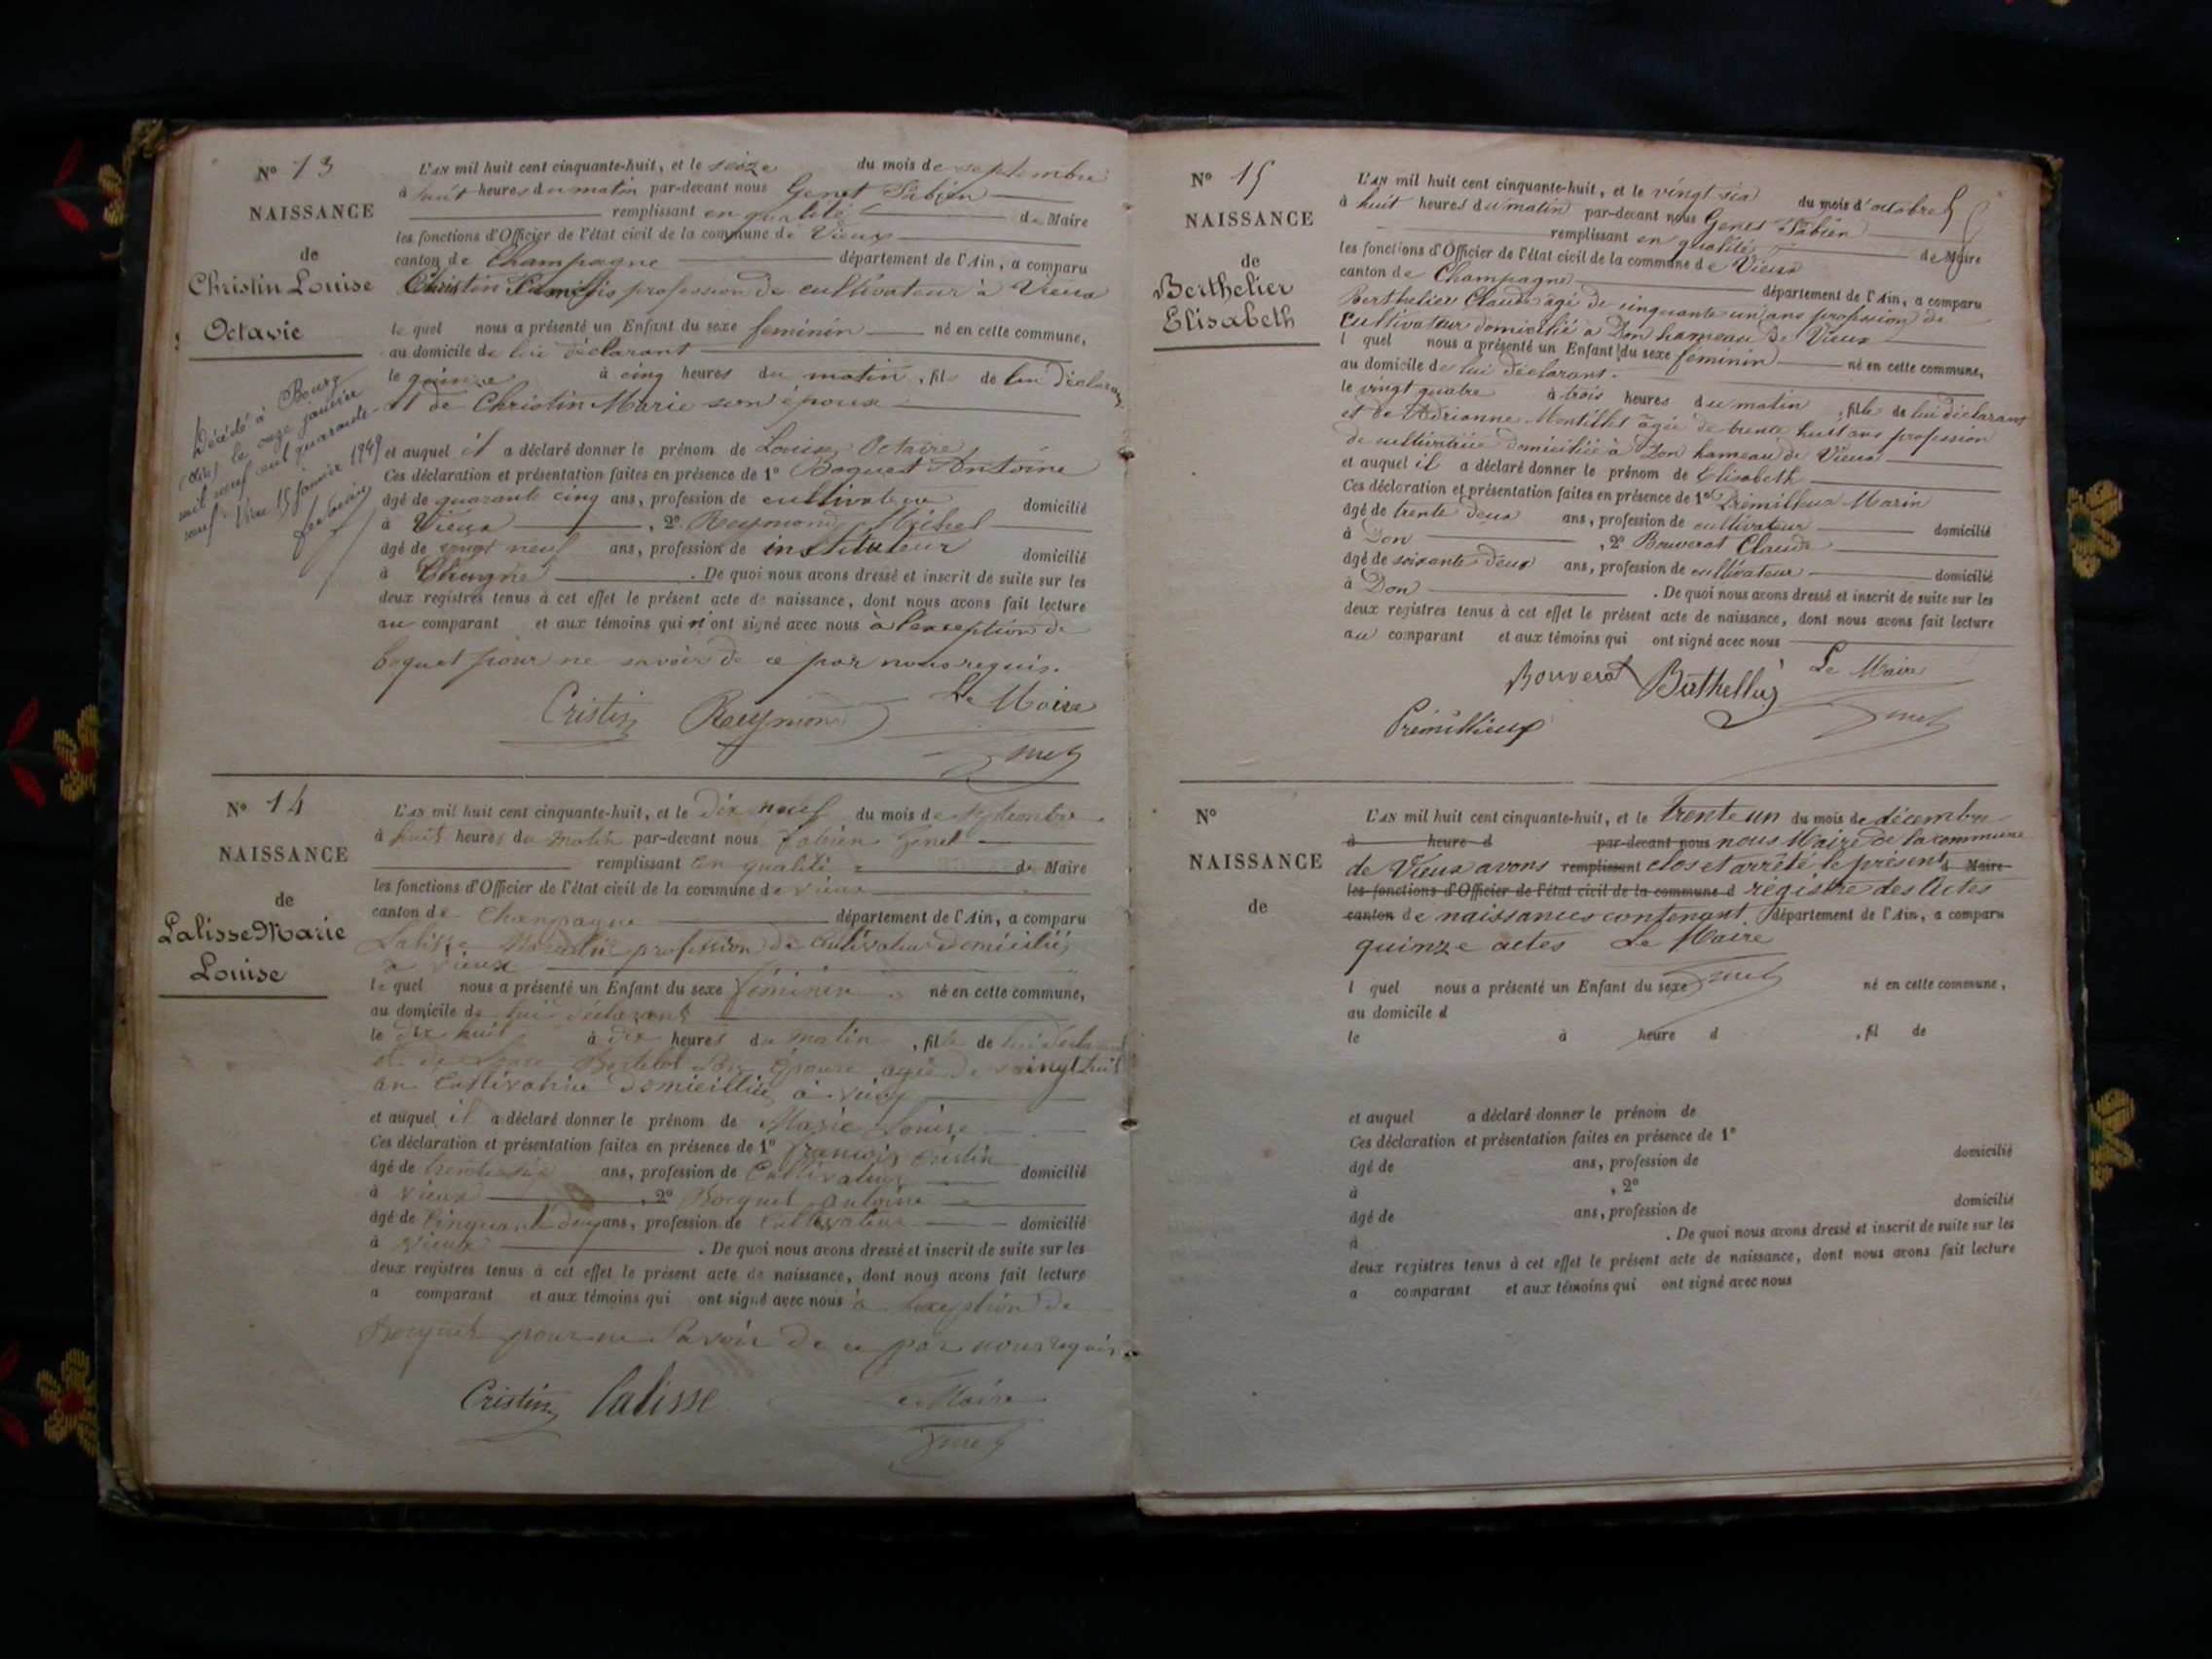 N° 13
NAISSANCE
de
Christin Louise
Octavie
Décédé à Bourg
(Ain) le onze janvier
mil neuf cent quarante-
neuf. Vieu 15 janvier 1949
L'AN mil huit cent cinquante-huit, et le seize du mois de septembre
à huit heures du matin par-devant nous Genet Fabien
remplissant en qualité de Maire
les fonctions d'Officier de l'état civil de la commune de Vieux
canton de Champagne département de l'Ain, a comparu
Christin profession de cultivateur à Vieux
le quel nous a présenté un Enfant du sexe feminin né en cette commune,
au domicile de lui déclarant
le quinze à cinq heures du matin, fils de lui déclarant
et de Christin Marie son épouse
et auquel il a déclaré donner le prénom de Louise Octavie
Ces déclaration et présentation faites en présence de 1° Boquet Antoine
âgé de quarante cinq ans, profession de cultivateur domicilié
à Vieux, 2° Reymond Michel
âgé de vingt neuf ans, profession de instituteur domicilié
à . De quoi nous avons dressé et inscrit de suite sur les
deux registres tenus à cet effet le présent acte de naissance, dont nous avons fait lecture
au comparant et aux témoins qui n'ont signé avec nous à l'exception de
boquet pour ne savoir de ce par nous requis.
Cristin Reymond Le Maire
Genet
N° 14
NAISSANCE
de
Lalisse Marie
Louise
L'AN mil huit cent cinquante-huit, et le dix neuf du mois de septembre
à huit heures du matin par-devant nous Fabien Genet
remplissant en qualité de Maire
les fonctions d'Officier de l'état civil de la commune de vieux
canton de Champagne département de l'Ain, a comparu
Lalisse profession de cultivateur domicilié
à vieux
le quel nous a présenté un Enfant du sexe féminin né en cette commune,
au domicile de lui déclarant
le dix huit à dix heures du matin, fille de lui déclarant
et de Bertelot son épouse agée de vingt huit
an cultivatrice domicilliée à vieux
et auquel il a déclaré donner le prénom de Marie Louise
Ces déclaration et présentation faites en présence de 1° francois cristin
âgé de trente six ans, profession de Cultivateur domicilié
à vieux, 2° Bocquet antoine
âgé de Cinquante deux ans, profession de Cultivateur domicilié
à vieux. De quoi nous avons dressé et inscrit de suite sur les
deux registres tenus à cet effet le présent acte de naissance, dont nous avons fait lecture
a comparant et aux témoins qui ont signé avec nous à l'exeption de
Bocquet pour ne Savoir de ce par nous requis
Cristin lalisse Le Maire
Genet
N° 15
NAISSANCE
de
Berthelier
Elisabeth
L'AN mil huit cent cinquante-huit, et le vingt six du mois d'octobre
à huit heures du matin par-devant nous Genet Fabien
remplissant en qualité de Maire
les fonctions d'Officier de l'état civil de la commune de Vieux
canton de Champagne département de l'Ain, a comparu
Berthelier Claude agé de cinquante un ans profession de
cultivateur domicilié à Don hameau de Vieux
l quel nous a présenté un Enfant du sexe féminin né en cette commune,
au domicile de lui déclarant.
le vingt quatre à trois heures du matin, fille de lui déclarant
et de Adrianne Montillet agée de trente huit ans profession
de cultivatrice domiciliée à Don hameau de Vieux
et auquel il a déclaré donner le prénom de Elisabeth
Ces déclaration et présentation faites en présence de 1° Prémillieux Marin
âgé de trente deux ans, profession de cultivateur domicilié
à Don, 2° Bouverat Claude
âgé de soixante deux ans, profession de cultivateur domicilié
à Don. De quoi nous avons dressé et inscrit de suite sur les
deux registres tenus à cet effet le présent acte de naissance, dont nous avons fait lecture
au comparant et aux témoins qui ont signé avec nous
Bouverat Berthellier Le Maire
Prémillieux Genet
N°
NAISSANCE
de
L'AN mil huit cent cinquante-huit, et le trente un du mois de décembre
à heure d par-devant nous nous Maire de la commune
de Vieux avons remplissant clos et arrêté le présent d Maire
les fonctions d'Officier de l'état civil de la commune d registre des Actes
canton de naissances contenant département de l'Ain, a comparu
quinze actes Le Maire
Genet
l quel nous a présenté un Enfant du sexe né en cette commune,
au domicile d
le à heure d , fil de
et auquel a déclaré donner le prénom de
Ces déclaration et présentation faites en présence de 1°
âgé de ans, profession de domicilié
à , 2°
âgé de ans, profession de domicilié
à . De quoi nous avons dressé et inscrit de suite sur les
deux registres tenus à cet effet le présent acte de naissance, dont nous avons fait lecture
a comparant et aux témoins qui ont signé avec nous